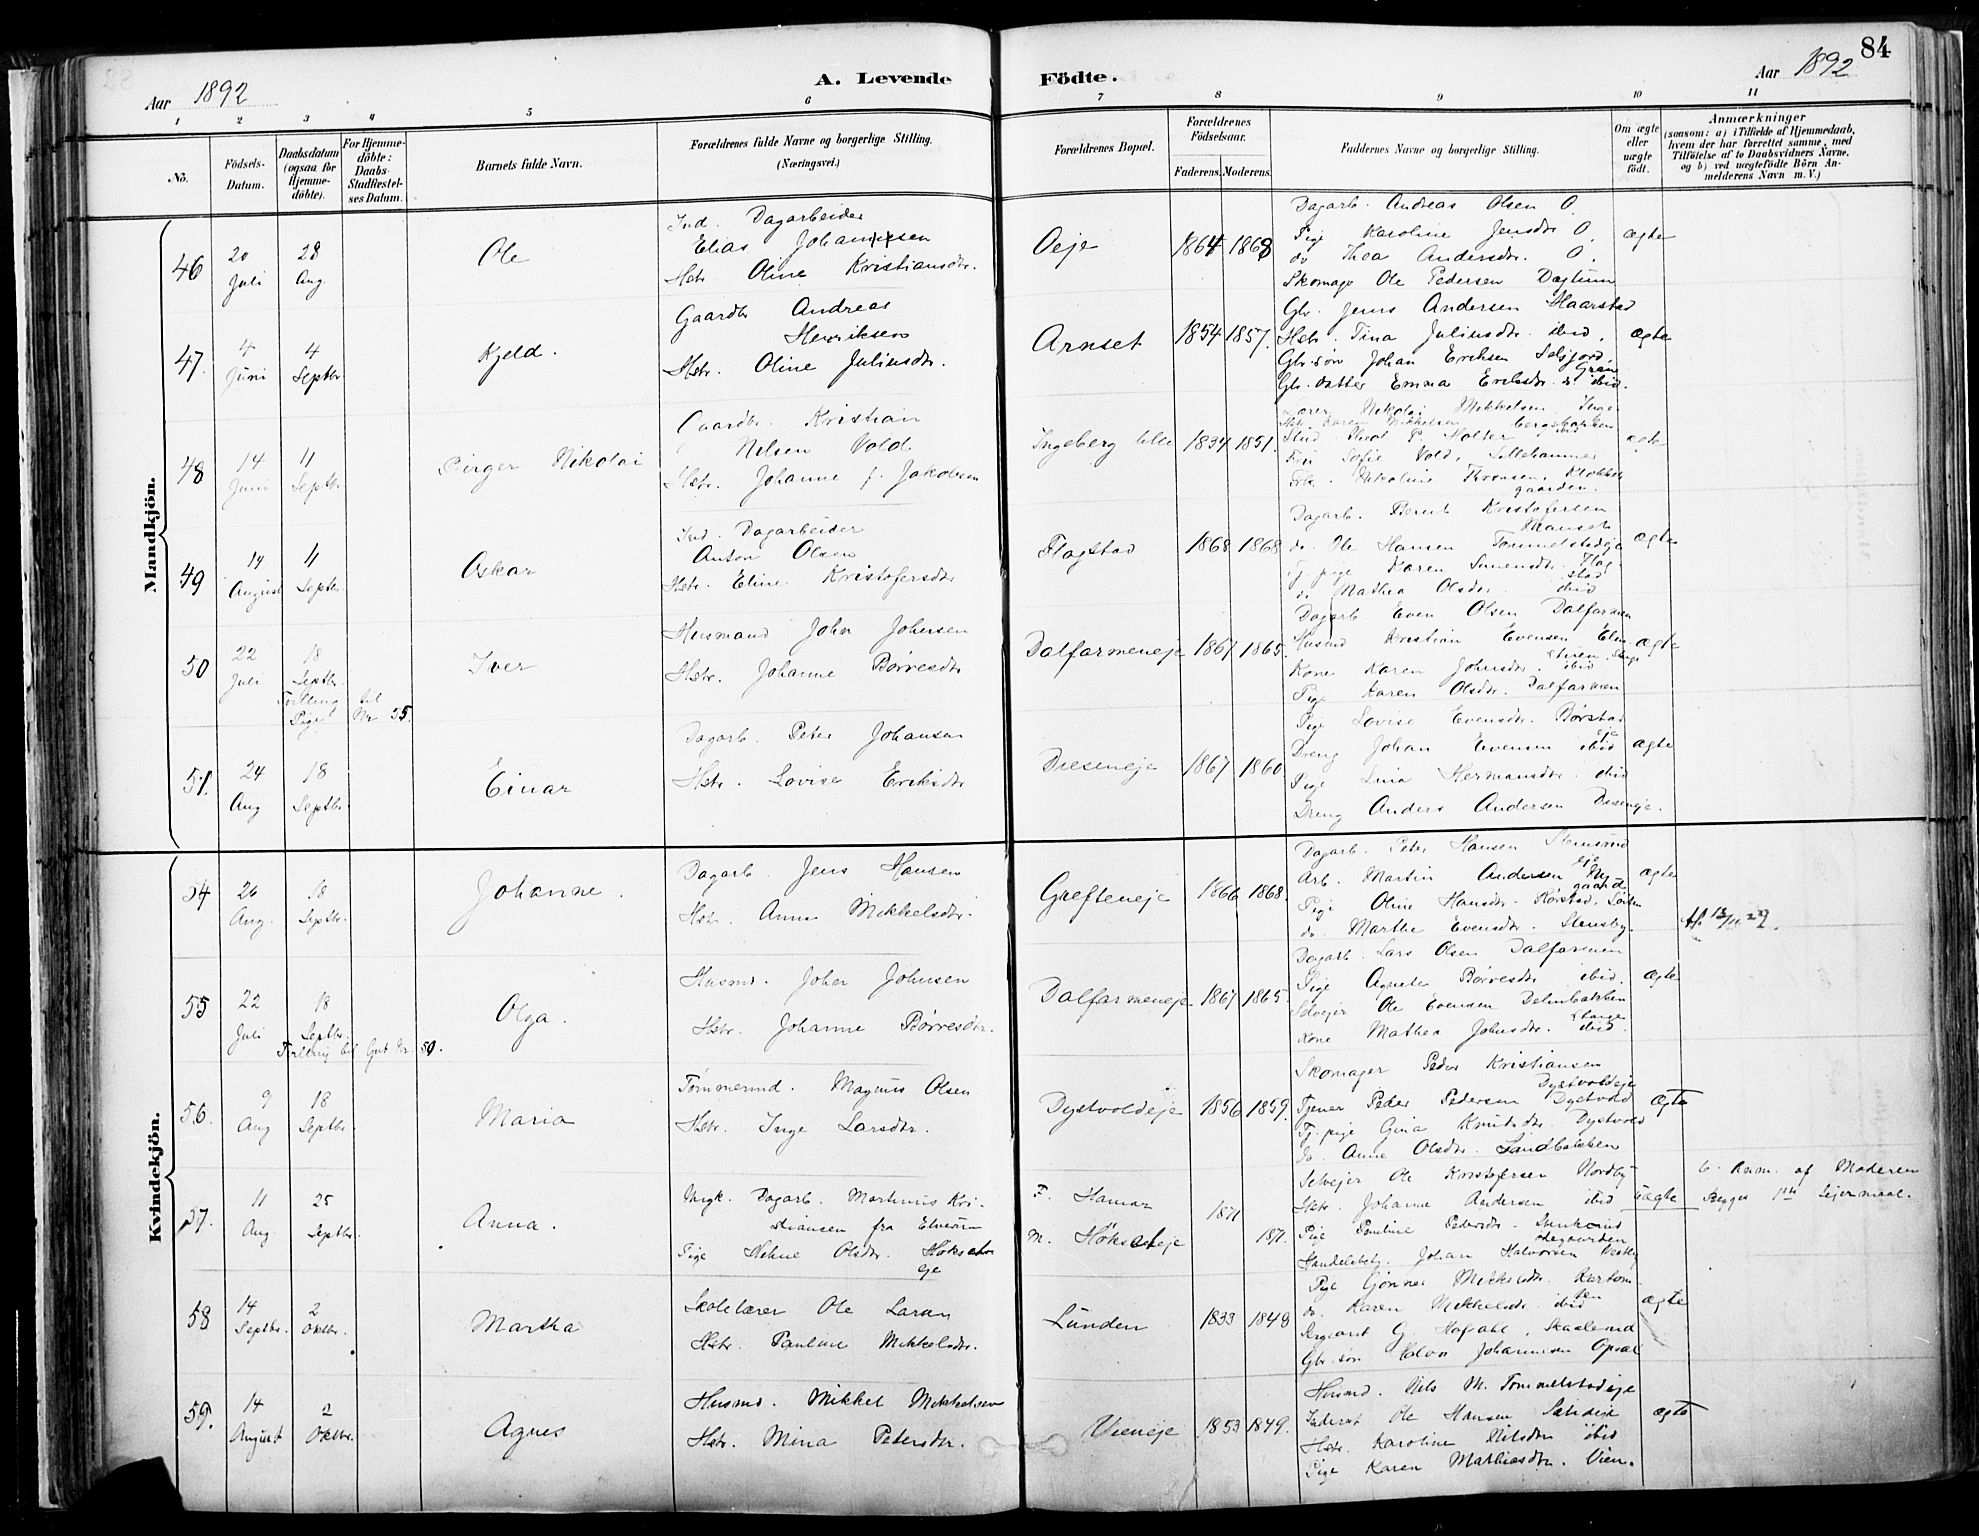 84
Aar 1892
A. Levende Födte.
Aar 1892
1 2 3 4 5 6 7 8 9 10 11
No.
Födsels-Datum.
Daabsdatum (ogsaa for Hjemme-döbte).
For Hjemme-döbte: Daabs-Stadfæstel-ses Datum.
Barnets fulde Navn.
Forældrenes fulde Navne og borgerlige Stilling. (Næringsvei.)
Forældrenes Bopæl.
Forældrenes Födselsaar.
Faderens. Moderens.
Faddernes Navne og borgerlige Stilling.
Om ægte eller uægte födt.
Anmærkninger
(saasom: a) i Tilfælde af Hjemmedaab, hvem der har forrettet samme, med Tilföielse af to Daabsvidners Navne. og b) ved uægtefödte Börn An-melderens Navn m. V.)
Mandkjön.
46 20 Juli 28 Aug. Ole
Ind. Dagarbeider
Elias Johannesen
Hstr. Oline Kristiansdtr.
Oeje 1864 1868
Dagarb. Andreas Olsen O.
Pige Karoline Jensdtr O.
do Thea Andersdtr. O.
Skomager Ole Pedersen Daglum
ægte
47. 4 Juni 4 Septbr Kjeld.
Gaardbr Andreas
Henriksen
Hstr. Oline Juliusdtr.
Arnset 1854 1857.
Gbr. Jens Andersen Haarstad
Hstr. Tina Juliusdtr. ibid.
Gbr. søn Johan Eriksen
Gbr. datter Emma Eriksdtr. ibid.
ægte
48 14 Juni 11 Septbr. Birger Nikolai
Gaardbr. Kristian
Nilsen Vold
Hstr. Johanne f. Jakobsen
Ingeberg lille 1834 1851.
Lærer Nikolai Mikkelsen Inge-
Hstr. Karen Mikkelsen bergbakken
Stud. Theol P. Holter ibid
Frk Sofie Vold, Lillehammer
Frk. Nikoline Thronsen, Klokker
gaarden.
ægte
49 14 August 11 Septbr Oskar
Ind. Dagarbeider
Anton Olsen
Hstr. Eline Kristofersdtr
Flagstad 1868 1868
Dagarb. Bernt Kristofersen
do. Ole Hansen Tommelstadeje
Tj. pige Karen Simensdtr. Flag
stad
do Mathea Olsdtr. ibid
ægte
50 22 Juli 18 Septbr. Iver
Tvilling til Pige Nr 55.
Husmand Johan Johnsen
Hstr. Johanne Børresdtr
Dalfarmeneje 1867 1865.
Dagarb Even Olsen Dalfarmen
Husmd Kristian Evensen
Kone Karen Johnsdtr. ibid
Pige Karen Olsdtr. Dalfarmen
ægte
51. 24 Aug 18 Septbr. Einar
Dagarb. Peter Johansen
Hstr. Lovise Eriksdtr
Dieseneje 1867 1860
Pige Lovise Evensdtr. Børstad
eje
Dreng Johan Evensen ibid
Pige Lina Hermansdtr. ibid
Dreng Anders Andersen Dieseneje.
ægte
Kvindekjön.
54 26 Aug. 18 Septbr. Johanne.
Dagarb. Jens Hansen
Hstr. Anne Mikkelsdtr.
Grefteneje 1866 1868.
Dagarb. Peter Hansen Stensrud
eje
Arb. Martin Andersen Ny
gaard
Pige Oline Hansdtr. Rørstad, Løiten
do. Marthe Evensdtr. Stensby.
ægte
55 22 Juli 18 Septbr. Olga.
Tvilling til Gut Nr. 50.
Husmd. Johan Johnsen
Hstr. Johanne Børresdtr.
Dalfarmeneje 1867 1865.
Dagarb. Lars Olsen Dalfarmen
Pige Agnete Børresdtr ibid.
Selvejer Ole Evensen
Stange
Kone Mathea Johnsdtr. ibid.
ægte
56. 9 Aug 18 Septbr. Maria
Tømmermd. Magnus Olsen
Hstr. Inge Larsdtr.
Dystvoldeje 1856 1859.
Skomager Peder Kristiansen
Dystvoldeje
Tjener Peder Pedersen Dystvold
Tj. pige Gina Knudsdtr. Dystvold
do. Anne Olsdtr. Sandbakken
ægte
57. 11 Aug 25 Septbr. Anna.
Ungk. Dagarb. Martinus Kri-
stiansen fra Elverum
Pige Helene Olsdtr. Høksetr
eje
F. Hamar 1871
M. Høkseteje 1871.
Selvejer Ole Kristofersen Nordby
Hstr. Johanne Andersen ibid
Pige Pauline Pedersdtr. Stenkrud
Handelsbetj. Johan Halvorsen
uægte
b. Anm. af Moderen
Begges 1ste Lejermaal.
58 14 Septbr. 2 Oktbr. Martha
Skolelærer Ole Larsen
Hstr. Pauline Mikkelsdtr.
Lunden 1833 1849
Pige Gjønner Mikkelsdtr.
do. Karen Mikkelsdtr. ibid
Sergeant G. Hofdahl, Skaalerud
Gbr. søn Halvor Johannesen Opsal
ægte
59. 14 August 2 Oktbr. Agnes
Husmd. Mikkel Mikkelsen
Hstr. Mina Petersdtr.
Vieneje 1853 1849.
Husmd. Nils M. Tommelstadeje
Inderst Ole Hansen
Hstr. Karoline Nilsdtr ibid
Pige Karen Mathiasdtr. Vien.
ægte